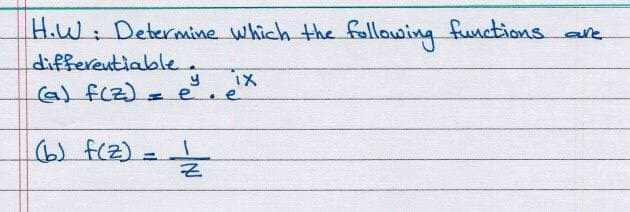 H.W : Determine which the following functions are
differentiable.
(a) f(z) = e^y . e^ix
(b) f(z) = 1/z